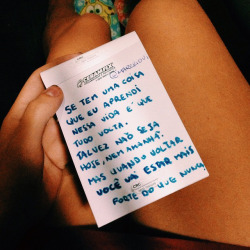 SE TEM UMA COISA
QUE EU APRENDI
NESSA VIDA É QUE
TUDO VOLTA.
TALVEZ NÃO SEJA
HOJE, NEM AMANHÃ.
MAS QUANDO VOLTAR
VOCÊ VAI ESTAR MAIS
FORTE DO QUE NUNCA